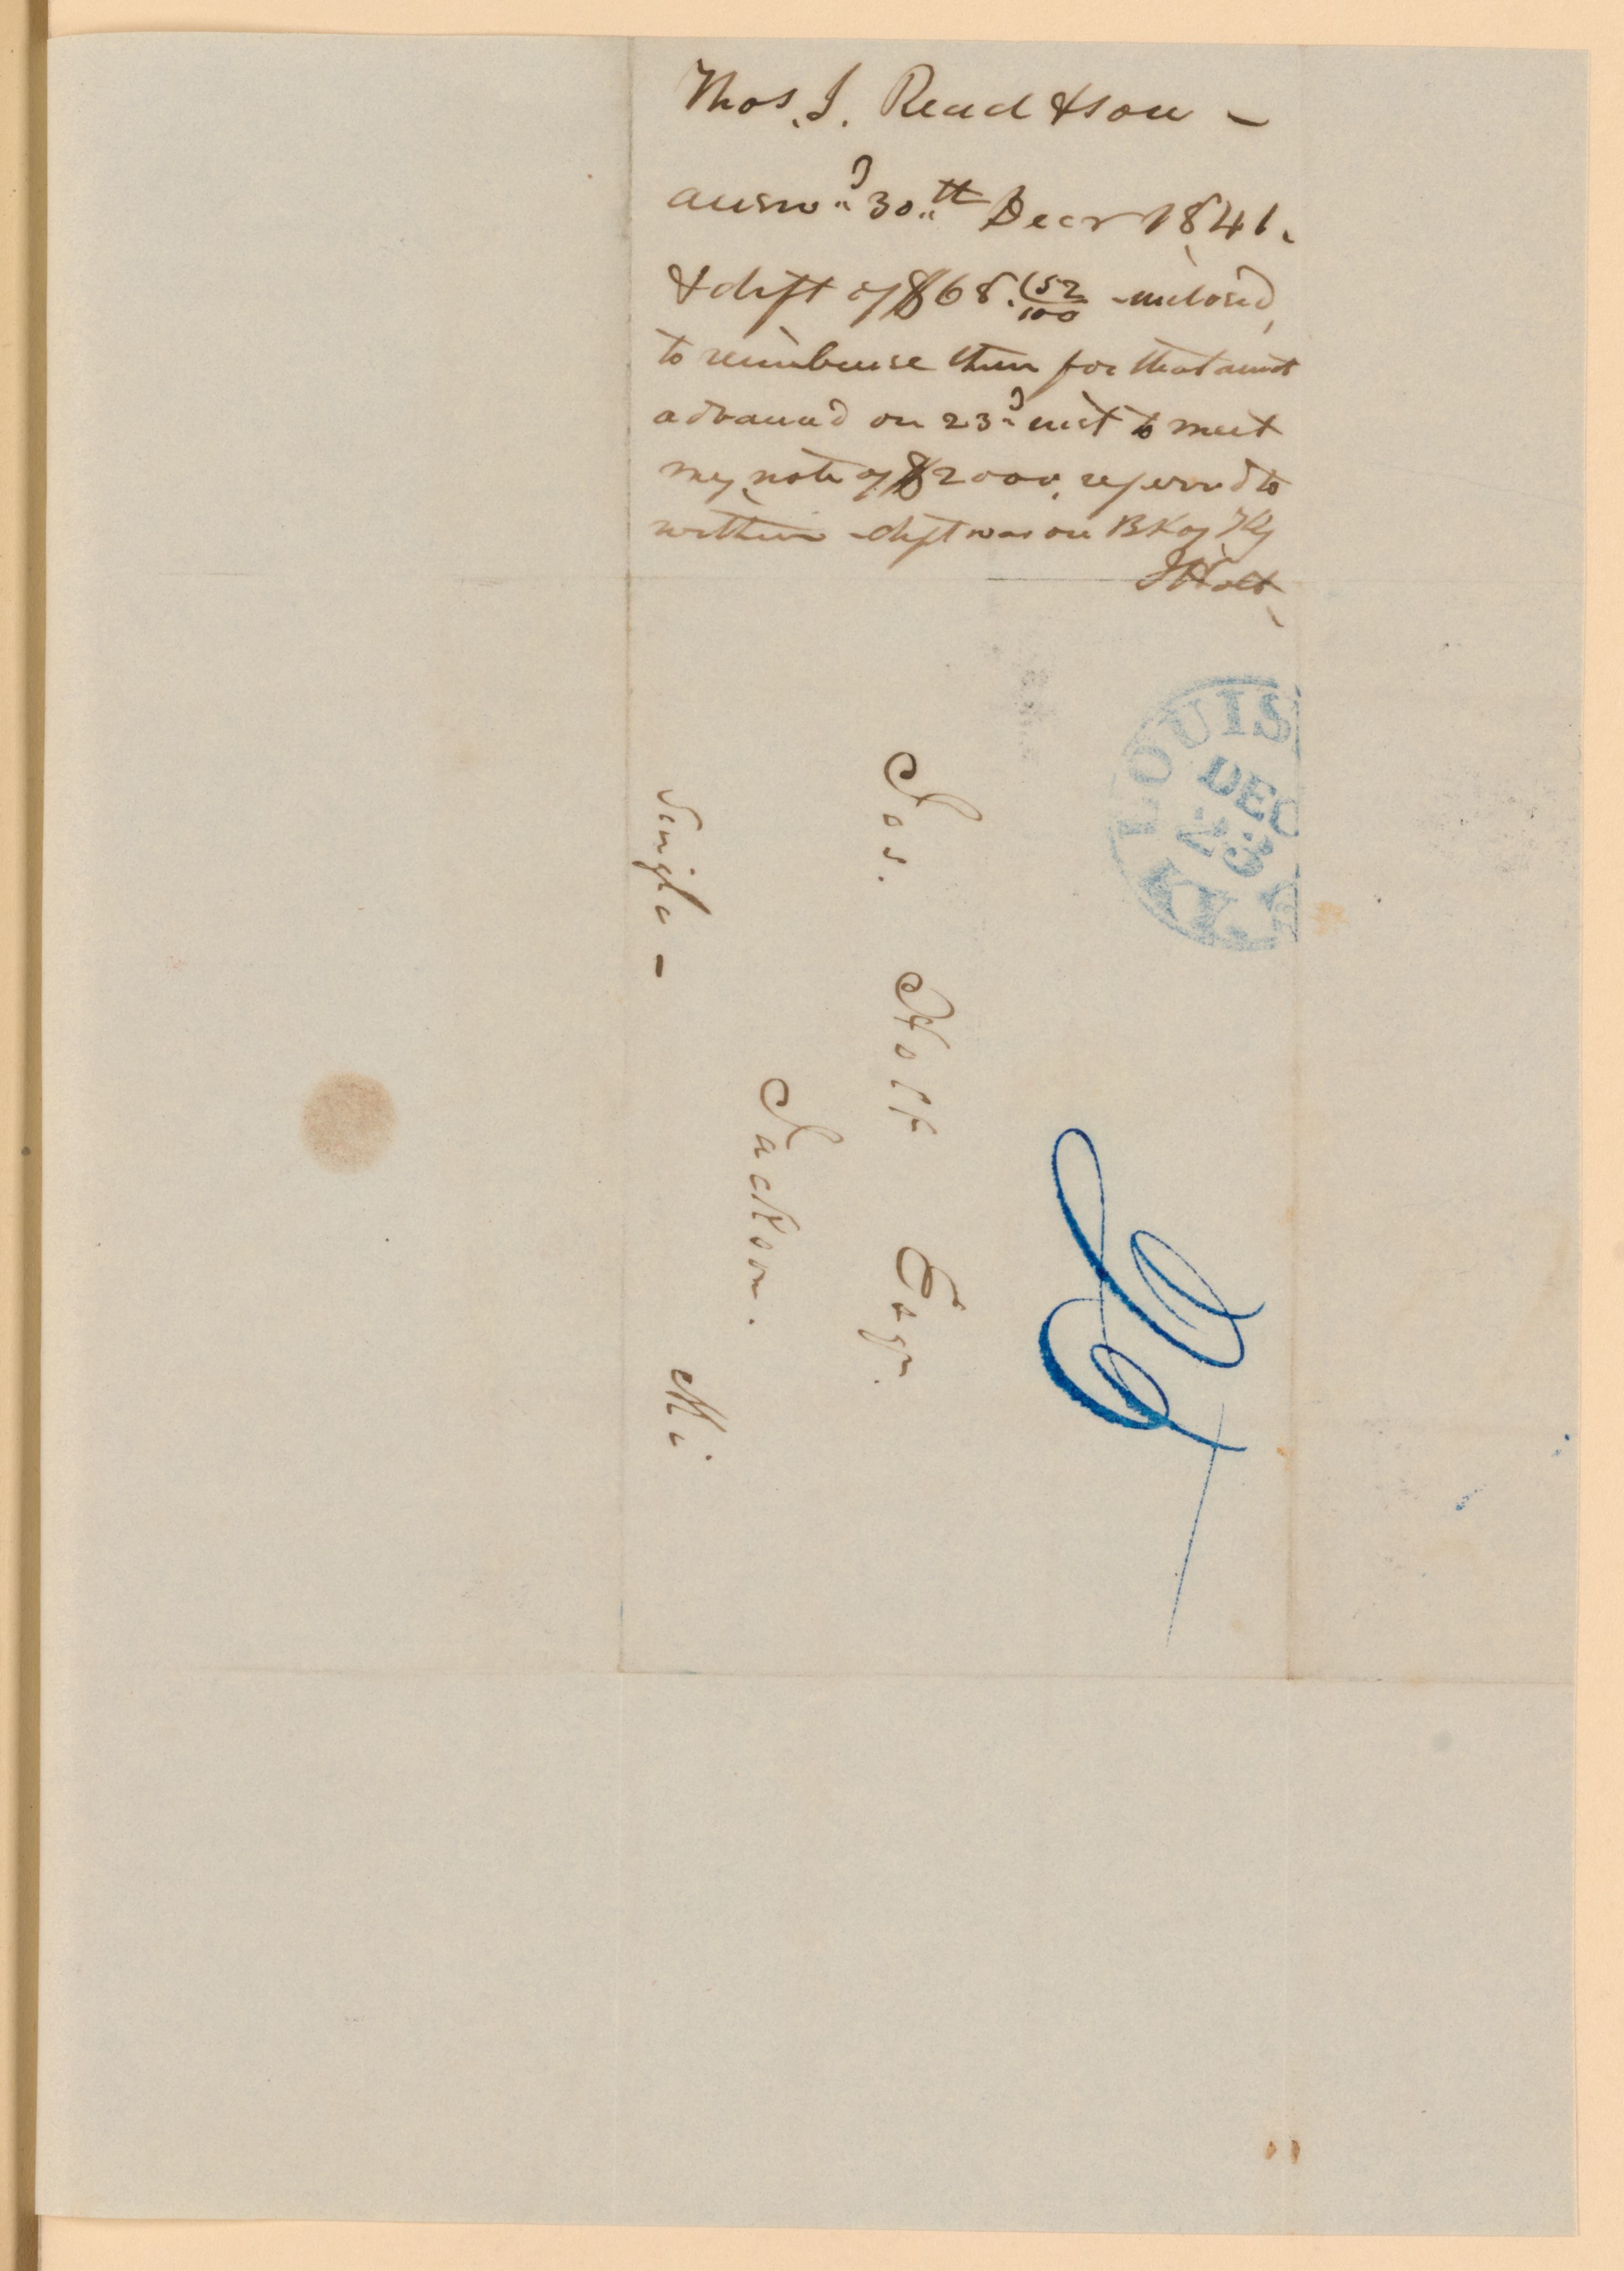 Thos. J. Read & son -
answd 30th Decr 1841.
& drft of $68.52/100 inclosed,
to reimburse them for that amot
advancd on 23d inst to meet
my note of $2000, referrd to
within - drft was on BK of Ky
J Holt
LOUISV
DEC
23
KY.
Jos. Holt Esqr.
Jackson.
Mi.
Single -